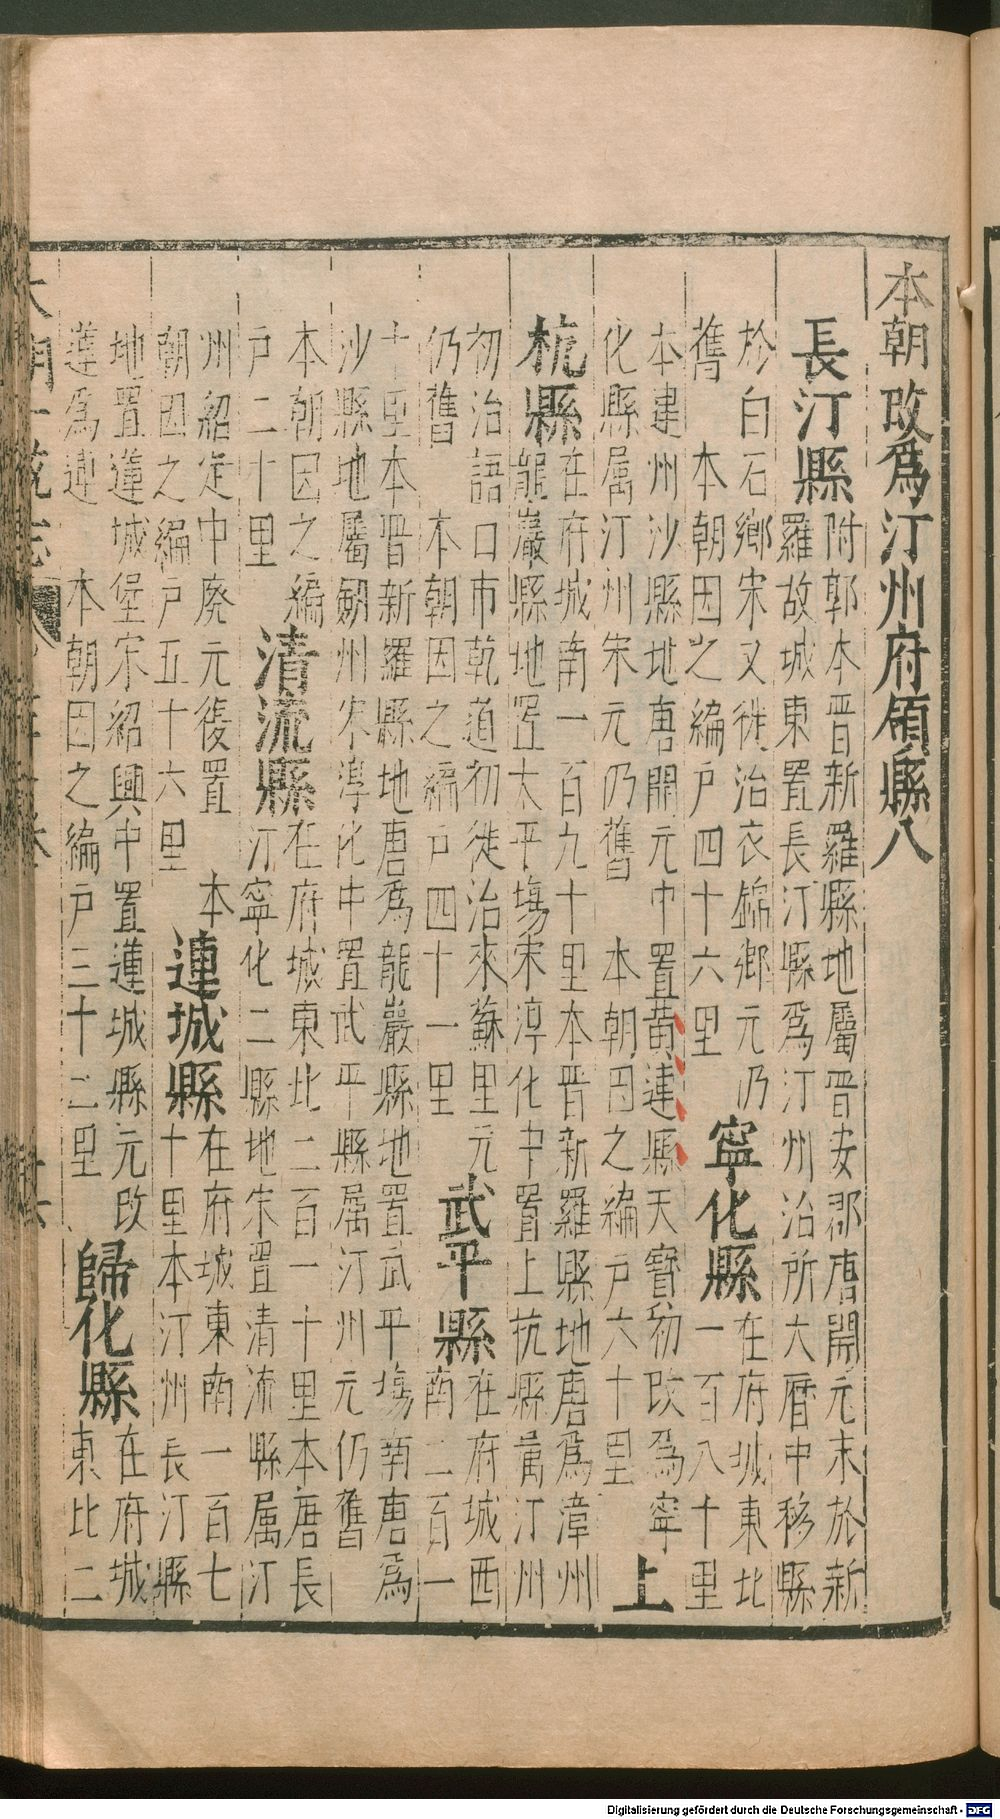 本朝改爲汀州府領縣八
長汀縣
附郭本晋新羅縣地屬晋安郡唐開元末於新
羅故城東置長汀縣爲汀州治所大曆中移縣
於白石鄉宋又徙治衣錦鄉元乃
舊　本朝因之編戶四十六里
寧化縣
在府城東北
一百八十里
本建州沙縣地唐開元中置黄連縣天寶初改爲寧
化縣属汀州宋元仍舊　本朝因之編戶六十里
上
杭縣
在府城南一百九十里本晋新羅縣地唐爲漳州
龍巖縣地置太平塲宋淳化中置上杭縣属汀州
初治語口市乾道初徙治來蘇里元
仍舊　本朝因之編戶四十一里
武平縣
在府城西
南二百一
十里本晋新羅縣地唐爲龍巖縣地置武平塲南唐爲
沙縣地屬劔州宋淳化中置武平縣属汀州元仍舊
本朝因之編
戶二十里
清流縣
在府城東北二百一十里本唐長
汀寧化二縣地宋置清流縣属汀
州紹定中廢元復置　本
朝因之編戶五十六里
連城縣
在府城東南一百七
十里本汀州長汀縣
地置蓮城堡宋紹興中置蓮城縣元改
蓮爲連　本朝因之編戶三十二里
歸化縣
在府城
東北二
Digitalisierung gefördert durch die Deutsche Forschungsgemeinschaft - DFG